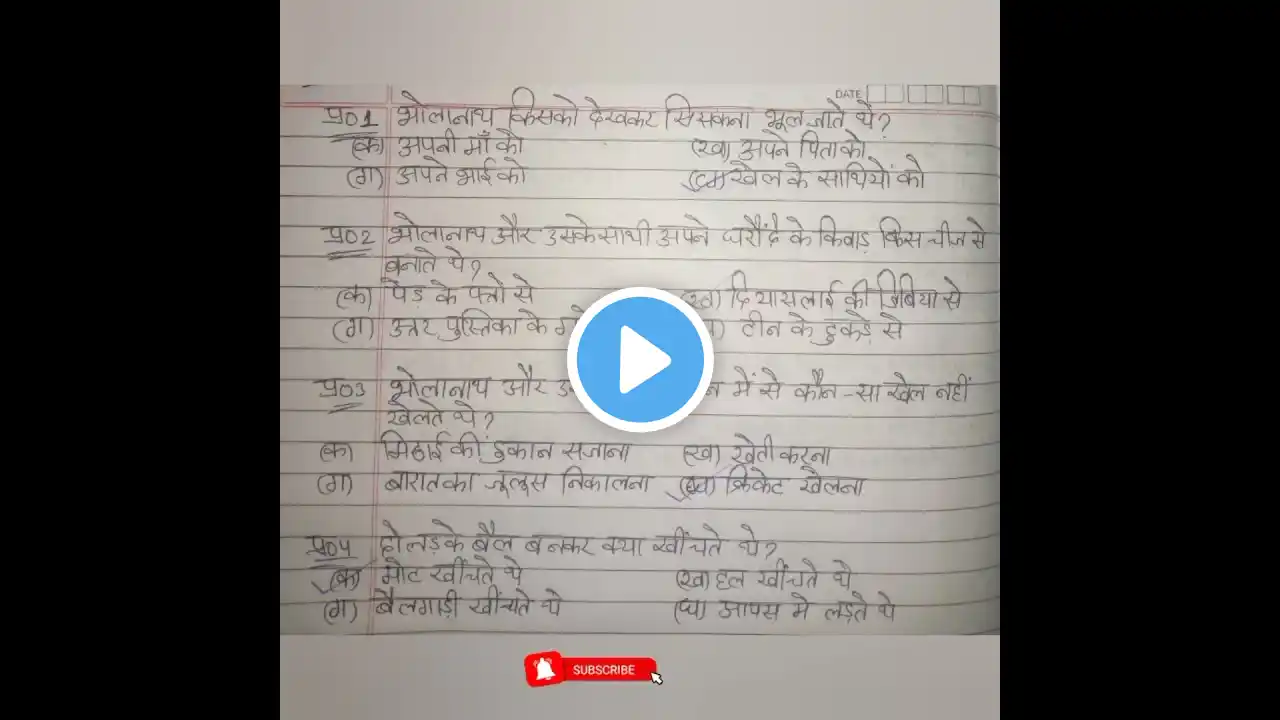 DATE
प्र01 भोलानाथ किसको देखकर सिसकना भूल जाते थे?
(क) अपनी माँ को (ख) अपने पिता को
(ग) अपने भाई को (घ) खेल के साथियों को
प्र02 भोलानाथ और उसके साथी अपने घरौंदे के किवाड़ किस चीज से
बनाते थे?
(क) पेड़ के पत्तो से (ख) दियासलाई की डिबिया से
(ग) उत्तर पुस्तिका के टीन के टुकड़े से
प्र03 भोलानाथ और में से कौन-सा खेल नहीं
खेलते थे?
(क) मिठाई की दुकान सजाना (ख) खेती करना
(ग) बारात का जूलूस निकालना (घ) क्रिकेट खेलना
प्र04 दो लड़के बैल बनकर क्या खींचते थे?
(क) मोट खींचते थे (ख) हल खींचते थे
(ग) बैलगाड़ी खींचते थे (घ) आपस मे लड़ते थे
SUBSCRIBE